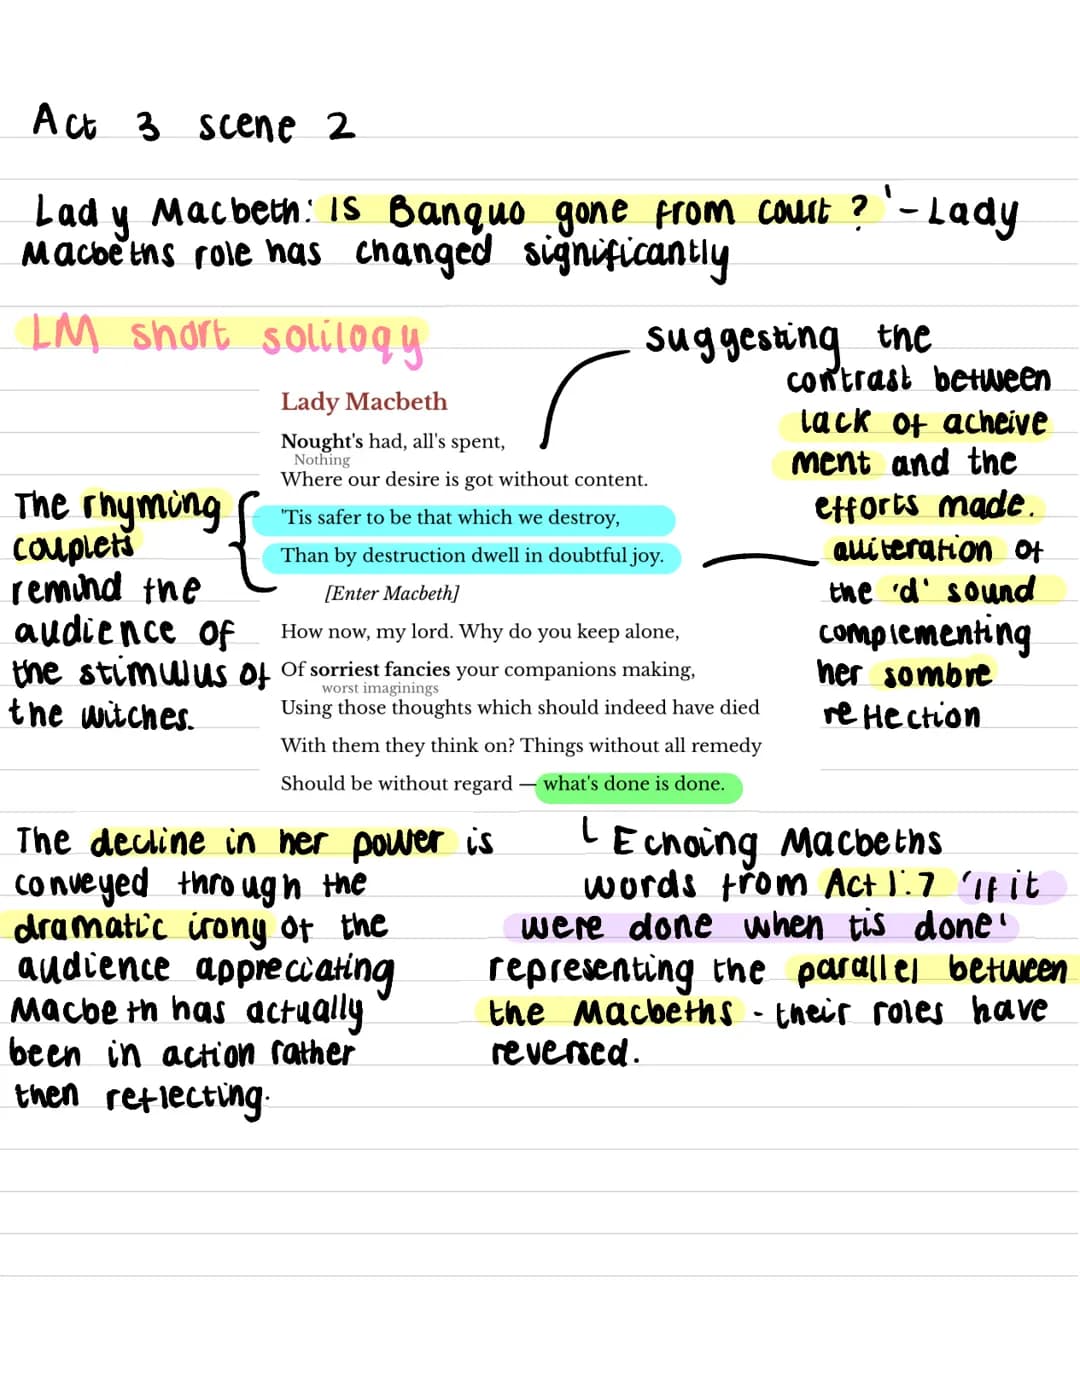 Act 3 scene 2
Lady Macbeth: Is Banquo gone from court?' - Lady
Macbeths role has changed significantly
LM short soliloqy
suggesting the
contrast between
lack of acheive
ment and the
efforts made.
alliteration of
the 'd' sound
complementing
her sombre
reflection
The rhyming
couplets
remind the
audience of
the stimulus of
the witches.
Lady Macbeth
Nought's had, all's spent,
Nothing
Where our desire is got without content.
'Tis safer to be that which we destroy,
Than by destruction dwell in doubtful joy.
[Enter Macbeth]
How now, my lord. Why do you keep alone,
Of sorriest fancies your companions making,
worst imaginings
Using those thoughts which should indeed have died
With them they think on? Things without all remedy
Should be without regard — what's done is done.
The decline in her power is
conveyed through the
dramatic irony of the
audience appreciating
Macbeth has actually
been in action rather
then reflecting.
Echoing Macbeths
words from Act 1:7 'If it
were done when tis done'
representing the parallel between
the Macbeths - their roles have
reversed.